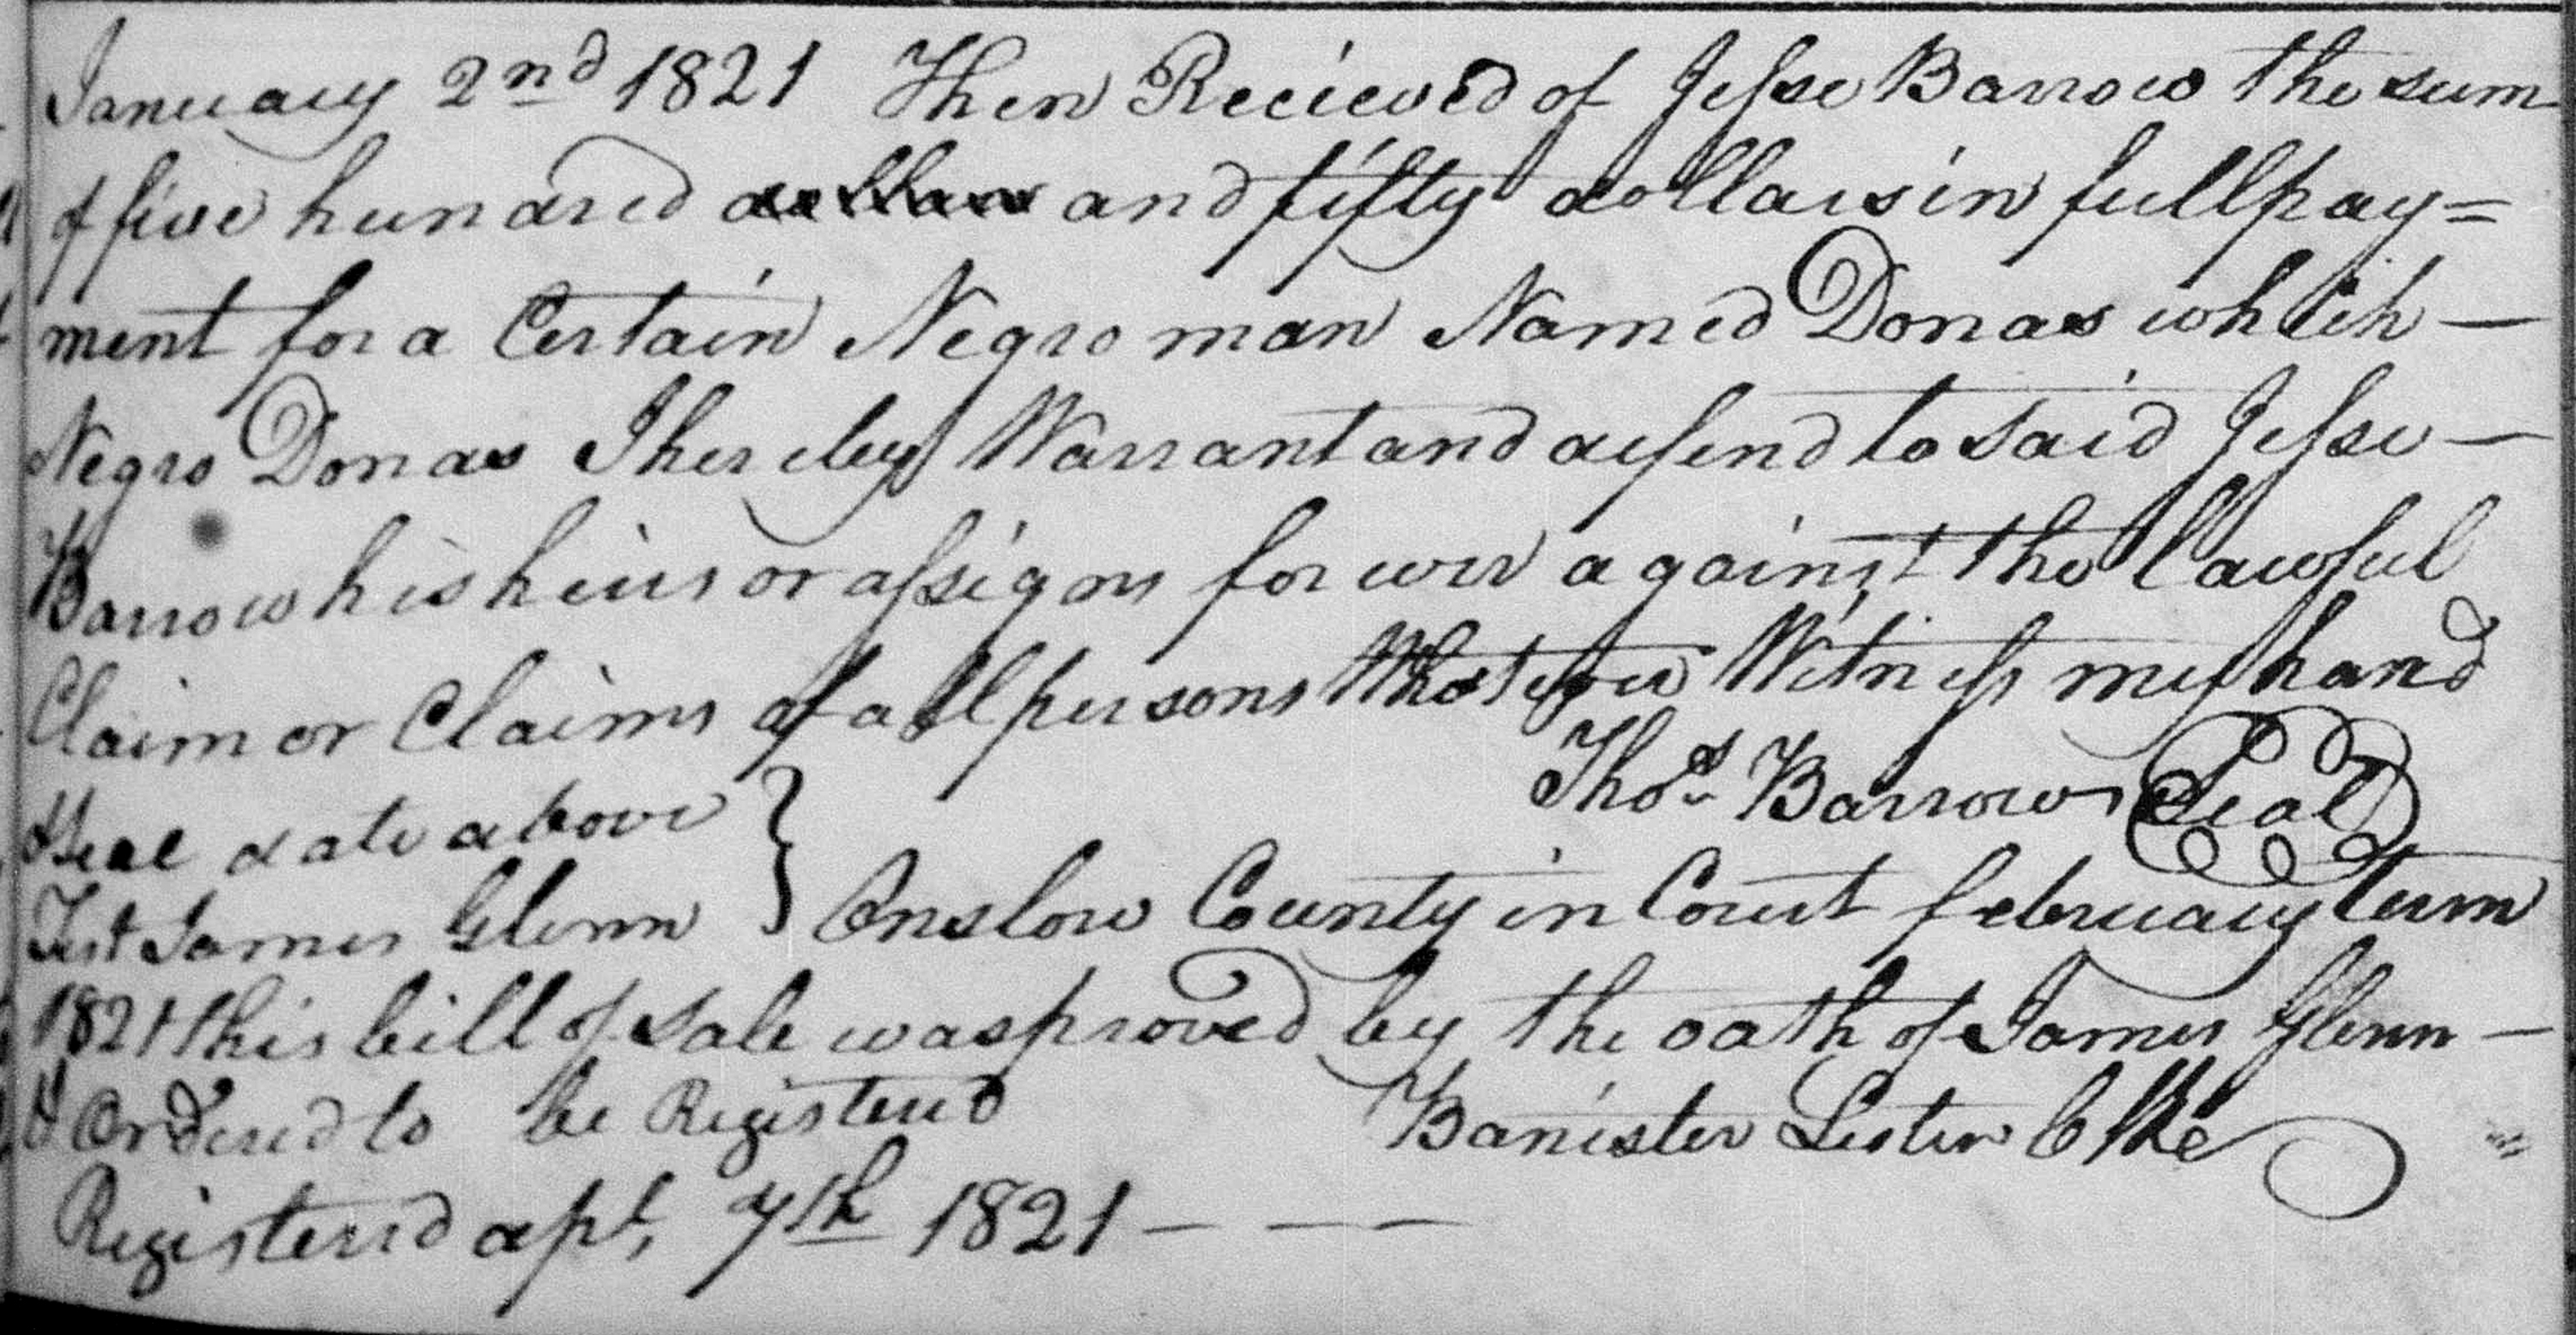 January 2nd 1821 Then Recieved of Jesse Barrow the sum
of five hundred dollars and fifty dollars in full pay=
ment for a Certain Negro man Named Donas which —
Negro Donas I hereby Warrant and defend to said Jesse —
Barrow his heirs or assigns for ever against the lawful
Claim or Claims of all persons Whatever Witness my hand
& Seal date above } Thos Barrow Seal
Test James Glenn } Onslow County in Court february term
1821 this bill of sale was proved by the oath of James Glenn —
& Ordered to be Registered Banister Lester Clke
Registered apl, 7th 1821 — — —